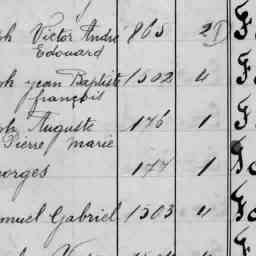 ph Victor André 865 2D F
Edouard
ph Jean Baptiste 1302 4 F
françois
ph Auguste 176 1 F
Pierre Marie
eorges 177 1
muel Gabriel 1303 4